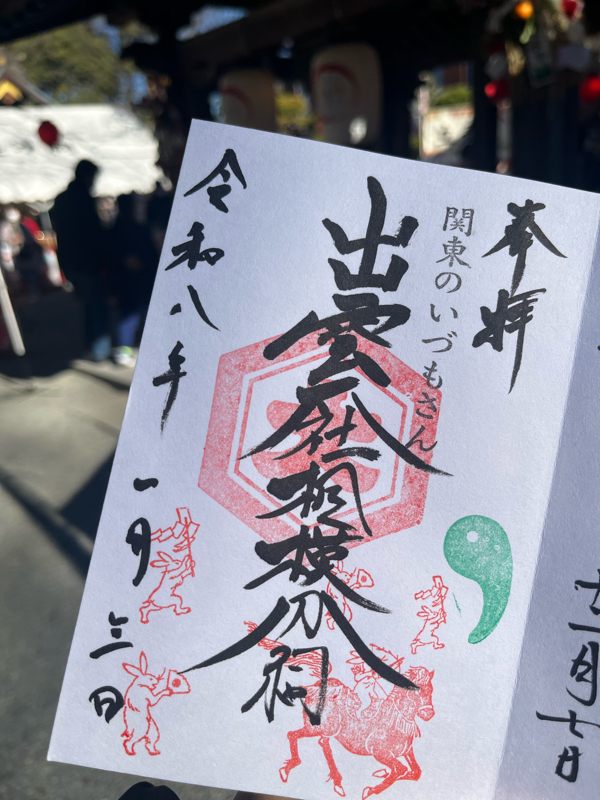 奉拝
関東のいづもさん
出雲大社相模分祠
令和八年
一月三日
十一月十七日